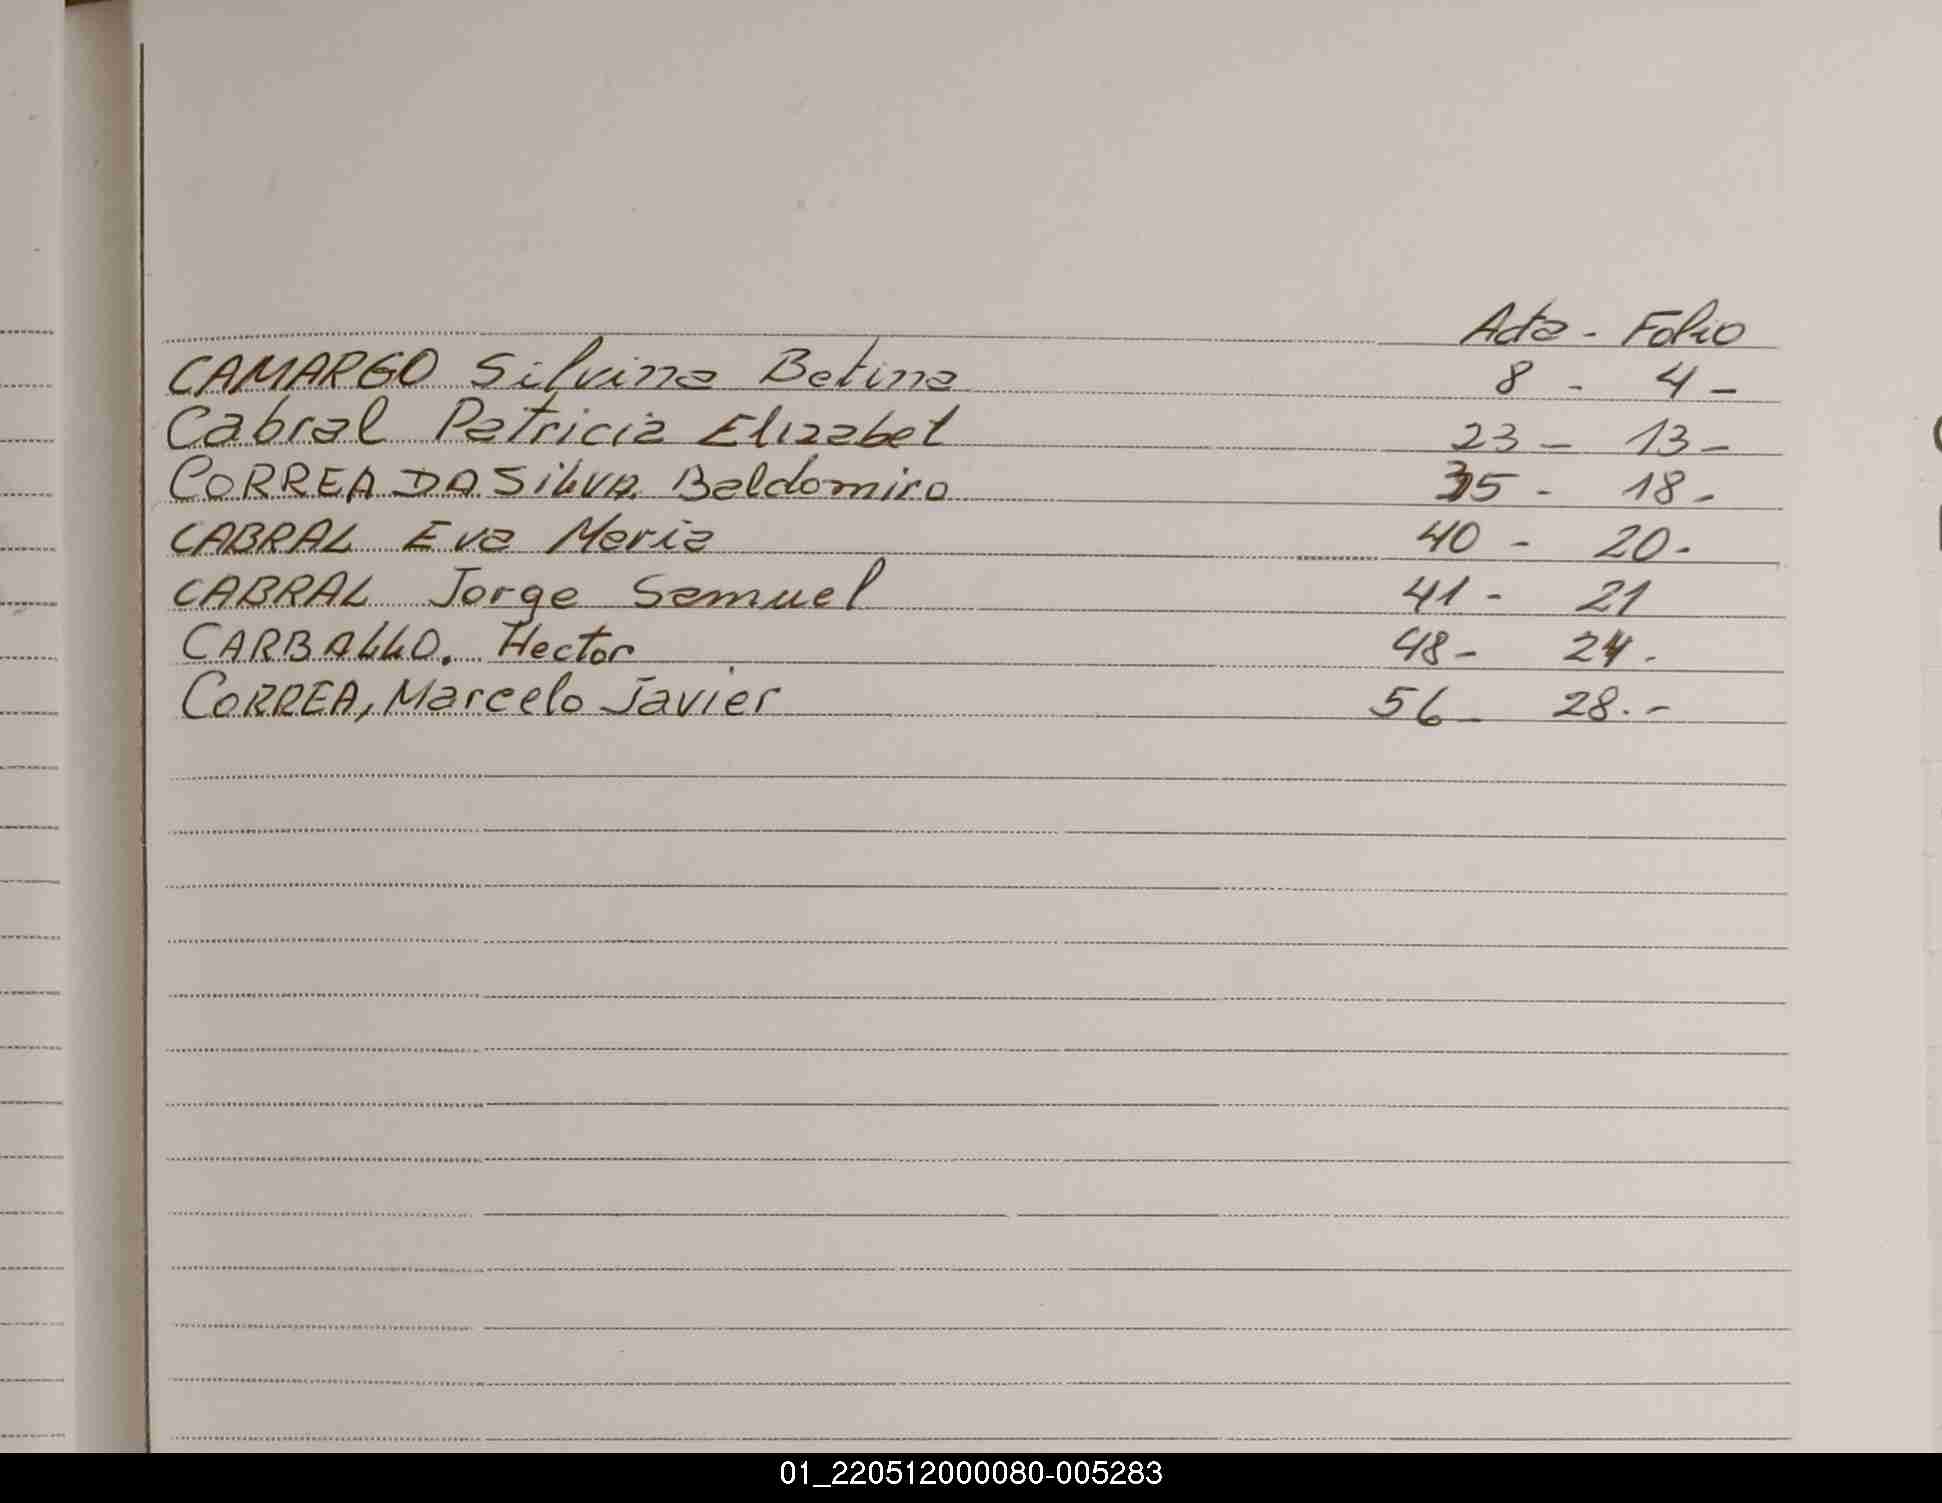 Acta - Folio
CAMARGO Silvina Betina 8 - 4 -
Cabral Patricia Elizabet 23 - 13 -
CORREA DA SILVA Baldomiro 35 - 18 -
CABRAL Eva Maria 40 - 20 -
CABRAL Jorge Samuel 41 - 21
CARBALLO. Hector 48 - 24 -
CORREA, Marcelo Javier 56 - 28. -
01_220512000080-005283